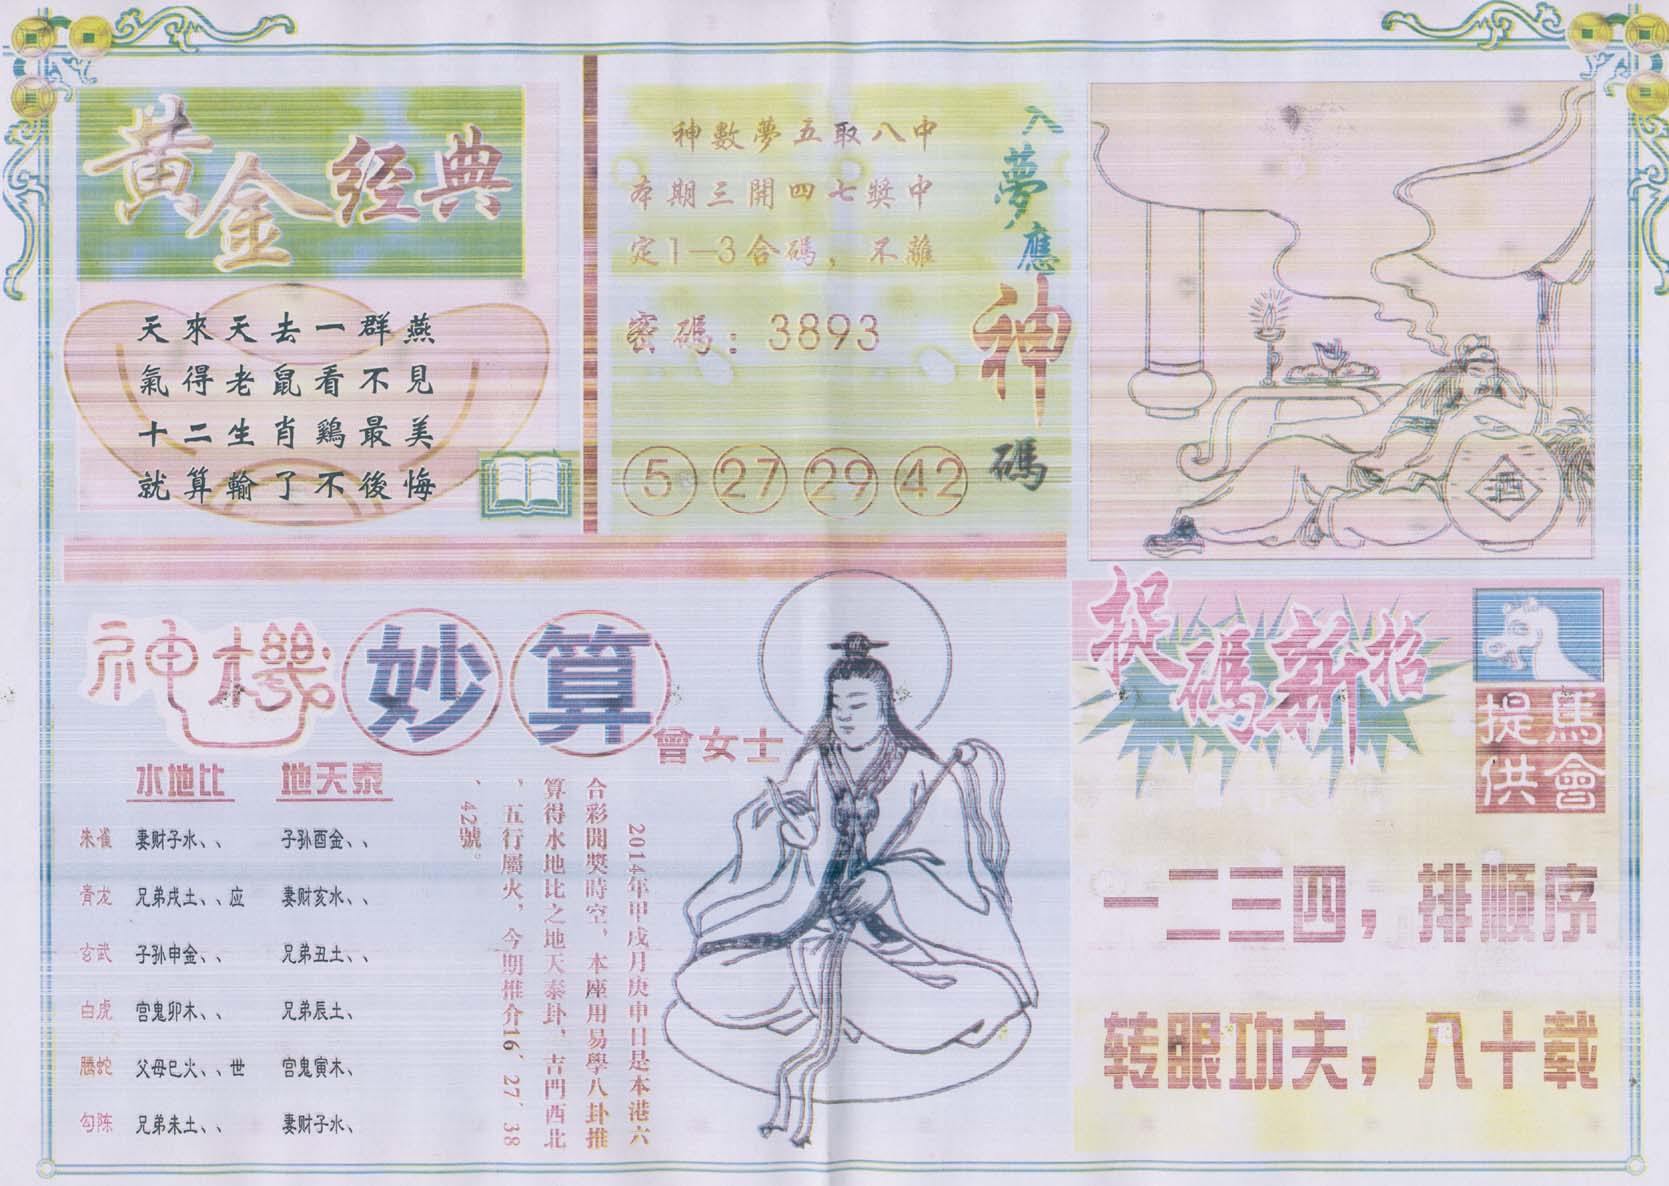 黄金经典
天來天去一群燕
氣得老鼠看不見
十二生肖鷄最美
就算輸了不後悔
神數夢五取八中
本期三開四七獎中
定1—3合碼，不離
密碼：3893
5 27 29 42
入夢應神碼
酒
神機妙算
曾女士
水地比 地天泰
朱雀 妻财子水、、 子孙酉金、、
青龙 兄弟戌土、、应 妻财亥水、、
玄武 子孙申金、、 兄弟丑土、、
白虎 宫鬼卯木、、 兄弟辰土、
腾蛇 父母巳火、、世 宫鬼寅木、
勾陈 兄弟未土、、 妻财子水、
2014年甲戌月庚申日是本港六
合彩開獎時空，本座用易學八卦推
算得水地比之地天泰卦，吉門西北
，五行屬火，今期推介16、27、38
、42號。
捉碼新招
馬會
提供
一二三四，排顺序
转眼功夫，八十载